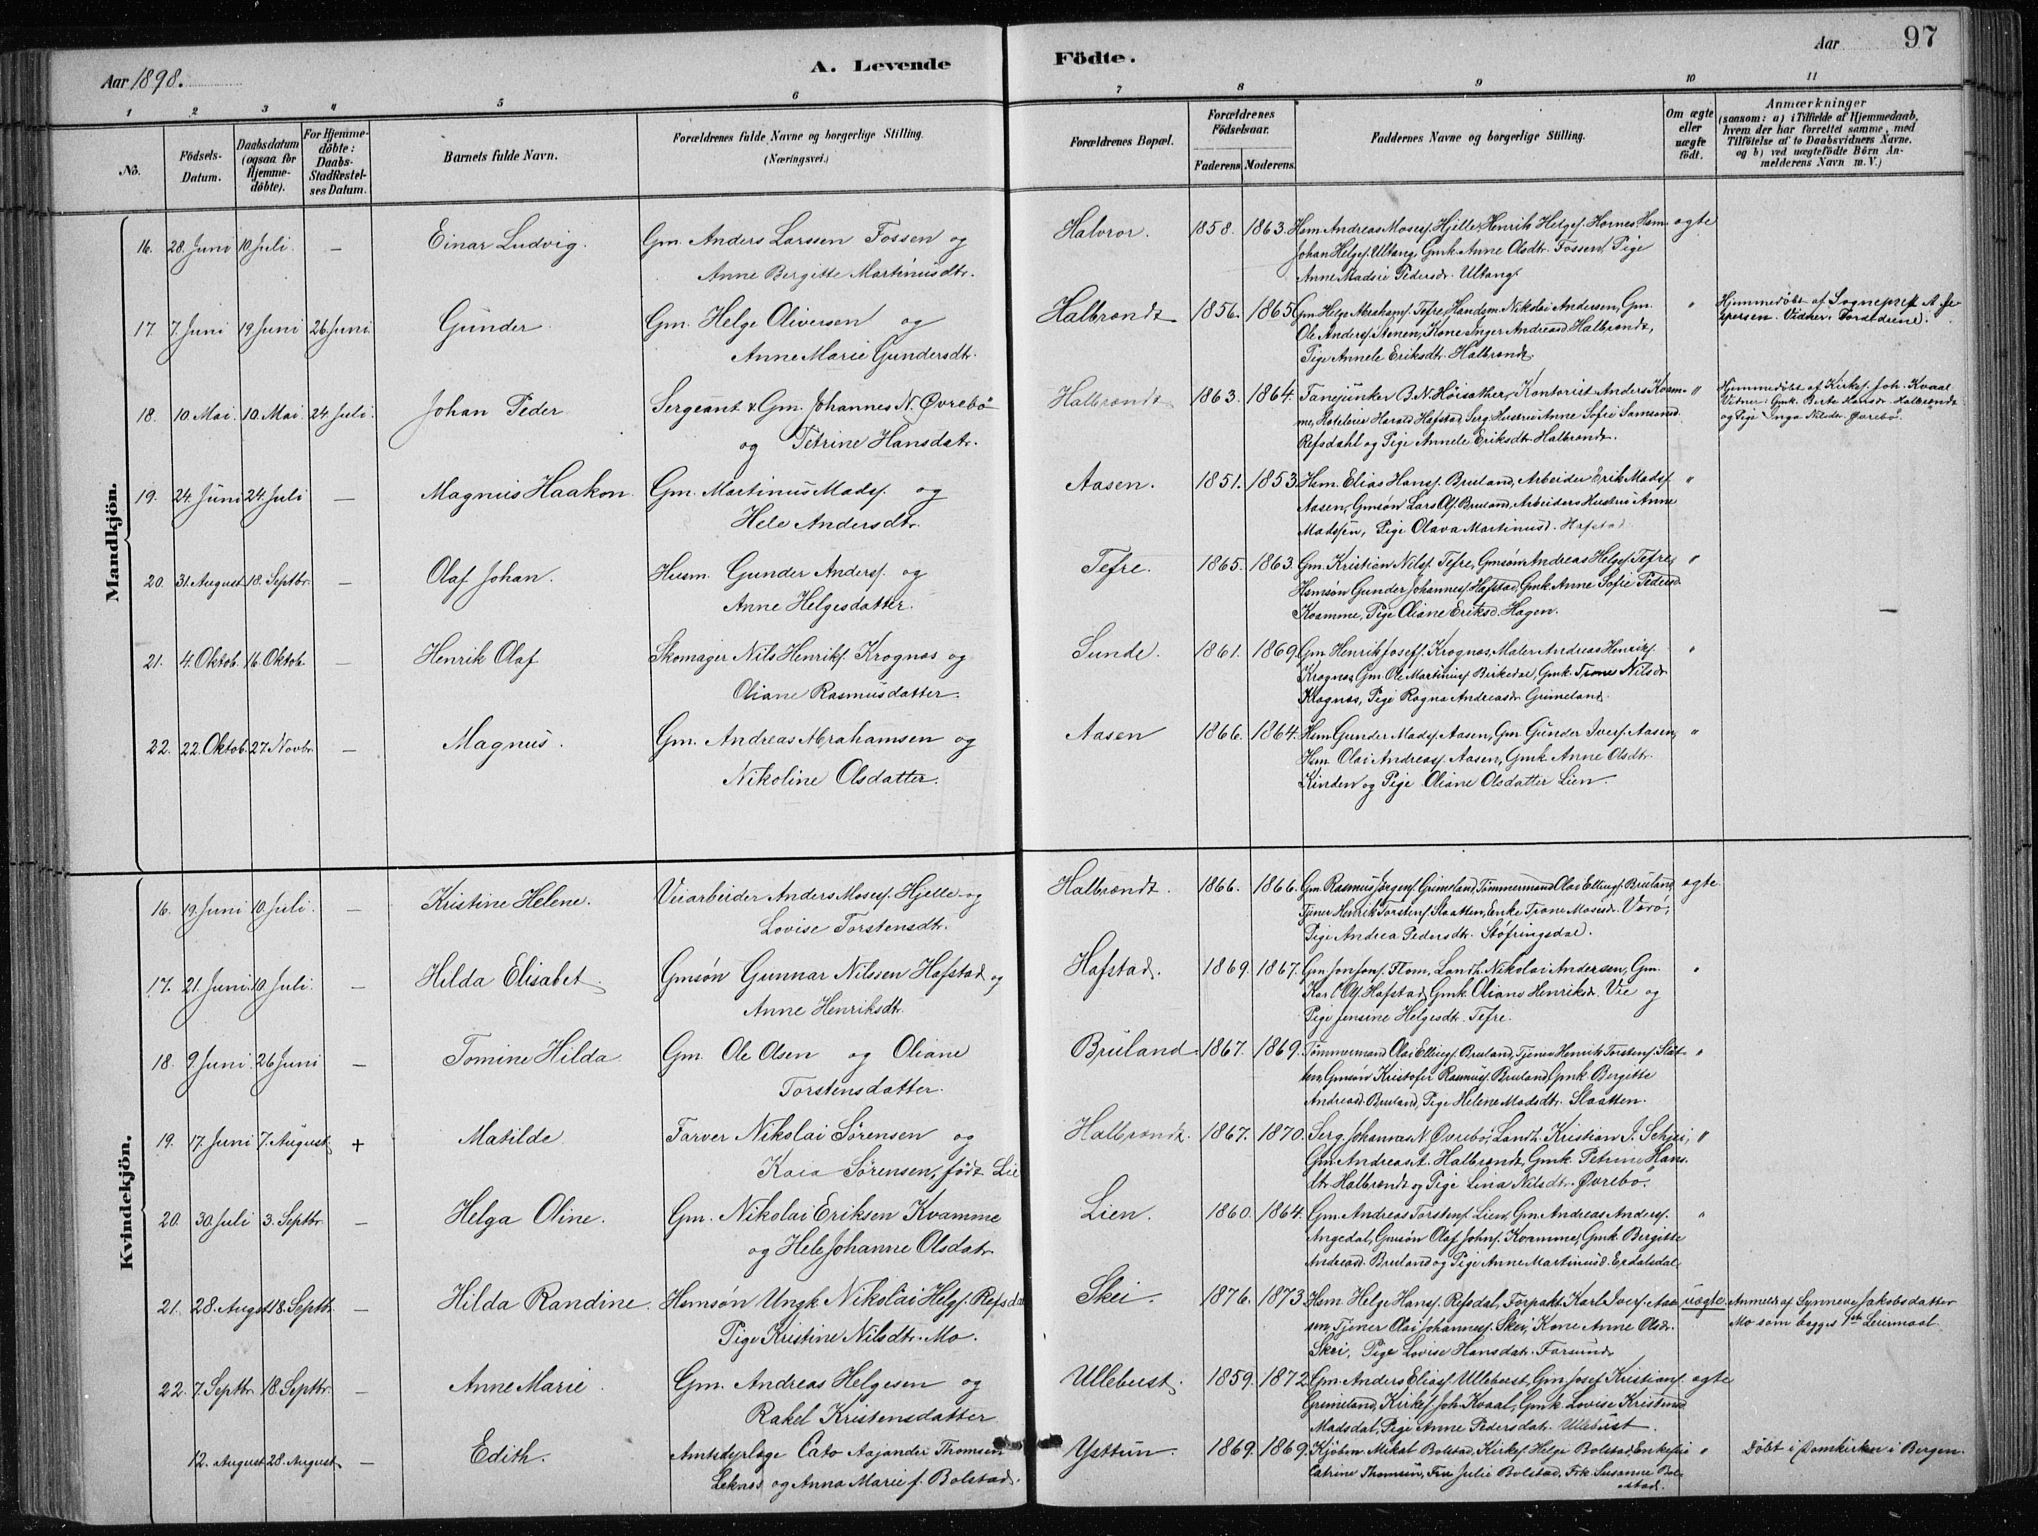 Aar 1898.
A. Levende
Födte.
Aar
97
1
2
3
4
5
6
7
8
9
10
11
No.
Födsels-
Datum.
Daabsdatum
(ogsaa for
Hjemme-
döbte).
For Hjemme-
döbte:
Daabs-
Stadfæstel-
ses Datum.
Barnets fulde Navn.
Forældrenes fulde Navne og borgerlige Stilling.
(Næringsvei.)
Forældrenes Bopæl.
Forældrenes
Födselsaar.
Faderens. Moderens.
Faddernes Navne og borgerlige Stilling.
Om ægte
eller
uægte
født.
Anmærkninger
(saasom: a) i Tilfælde af Hjemmedaab,
hvem der har forrettet samme, med
Tilföielse af to Daabsvidners Navne,
og b) ved uægtefödte Börn An-
melderens Navn m. V.)
Mandkjön.
16. 28. Juni 10. Juli. — Einar Ludvig. Gm. Anders Larssen Fossen og
Anne Bergitte Martinusdtr.
Halvror. 1858. 1863. Hsm Andreas Moses. Hjelle, Henrik Helges. Hornes Hsm ægte
Johan Helges. Ultang, Gmk. Anne Olsdtr. Fossen, Pige
Anne Madsie Pedersdr. Ultang.
17. 7. Juni 19 Juni 26. Juni. Gunder. Gm. Helge Oliversen og
Anne Marie Gundersdtr.
Halbrendt 1856. 1865 Gm Helge Abrahams. Tefre, Handsm. Nikolai Andersen, Gm. "
Ole Anders. Stenen, Kone Inger Andreasd Halbrendt,
Pige Annele Eriksdtr. Halbrendt.
Hjemmedøbt af Sognepræst A. Je-
spersen. Vidner: Forældrene.
18. 10. Mai. 10. Mai 24. Juli. Johan Peder Sergeant & Gm. Johannes N. Øvrebø
og Petrine Hansdatr.
Halbrendt 1863. 1864. Fanejunker B. N. Høisæther, Kontorist Anders Kvam- "
me, Hoteleier Harald Hafstad, Serg. Hustru Anne Sofie Samsonsd.
Refsdahl og Pige Annele Eriksdtr. Halbrendt.
Hjemmedøbt af Kirkes. Joh. Kvaal
Vidner: Gmk. Birte Hansdr. Halbrendt
og Pige Inga Nilsdr. Øvrebø.
19. 24. Juni 24. Juli — Magnus Haakon. Gm. Martinus Mads. og
Hele Andersdtr.
Aasen. 1851. 1853. Hsm. Elias Hans. Bruland, Arbeider Erik Mads. "
Aasen, Gmsøn Lars Ols. Bruland, Arbeiders Hustru Anne
Madssen, Pige Olava Martinusd. Hafstad.
20. 31. August 18. Septbr. — Olaf Johan. Husm. Gunder Anders. og
Anne Helgesdatter.
Tefre. 1865. 1863. Gm. Kristian Nils. Tefre, Gmsøn Andreas Helges. Tefre, "
Hsmsøn Gunder Johannes. Hafstad, Gmk Anne Sofie Pedersd.
Kvamme, Pige Oliane Eriksd. Hagen.
21. 4. Oktob. 16 Oktob. — Henrik Olaf Skomager Nils Henriks. Krognæs og
Oliane Rasmusdatter.
Sunde. 1861. 1869. Gm. Henrik Josefs. Krognæs, Maler Andreas Henriks. "
Krognæs, Gm. Ole Martinius. Birkedal, Gmk. Trone Nilsdr.
Krognæs, Pige Ragna Andreasdr. Grimeland.
22. 22. Oktob. 27. Novbr. — Magnus. Gm. Andreas Abrahamsen og
Nikoline Olsdatter.
Aasen 1866. 1864. Hsm Gunder Mads. Aasen, Gm. Gunder Ivers. Aasen, "
Hsm. Olai Andreas. Aasen, Gmk. Anne Olsdtr.
Kinden og Pige Oliane Olsdatter Lien.
Kvindekjön.
16. 19. Juni 10. Juli. — Kristine Helene. Veiarbeider Anders Moses. Hjelle og
Lovise Torstensdtr.
Halbrendt. 1866. 1866. Gm. Rasmus Jørgens. Grimeland, Tømmermand Olai Ellings. Bruland, ægte
Tjener Henrik Torstens. Slaatten, Enke Trone Mosesdr. Værø,
Pige Andrea Pedersdtr. Støfringsdal.
17. 21. Juni 10. Juli. — Hilda Elisabet. Gmsøn Gunnar Nilssen Hafstad og
Anne Henriksdtr.
Hafstad. 1869. 1867. Gm Jon Jons. Flom, Landh. Nikolai Andersen, Gm. "
Kar Ols. Hafstad, Gmk. Oliane Henriksdr. Vie og
Pige Jensine Helgesdtr. Tefre.
18. 9. Juni 26 Juni — Tomine Hilda Gm. Ole Olsen og Oliane
Torstensdatter.
Bruland. 1867. 1869. Tømmermand Olai Ellings. Bruland, Tjener Henrik Torstens. Slåt- "
ten, Gmsøn Kristofer Rasmus. Bruland, Gmk. Bergitte
Andreasd. Bruland, Pige Helene Madsdtr. Slaatten.
19. 17. Juni 7. August + Matilde Farver Nikolai Sørensen og
Kaia Sørensen, født Lie
Halbrendt. 1867. 1870. Serg. Johannes N. Øvrebø, Landh. Kristian J. Schei, "
Gm. Andreas A. Halbrendt, Gmk. Petrine Hans-
dtr. Halbrendt og Pige Lina Nilsdtr. Øvrebø.
20. 30. Juli 3. Septbr. — Helga Oline. Gm. Nikolai Eriksen Kvamme
og Hele Johanne Olsdatr.
Lien. 1860. 1864. Gm. Andreas Torstens. Lien, Gm. Andreas Anders. "
Angedal, Gmsøn Olaf Johns. Kvamme, Gmk Bergitte
Andreasd. Bruland og Pige Anne Martinusd. Erdalsdal.
21. 28. Augst 18. Septbr. — Hilda Randine. Hsmsøn Ungk. Nikolai Helges. Refsdal
Pige Kristine Nilsdtr. Mo.
Skei 1876. 1873 Hsm. Helge Hans. Refsdal, Forpakt. Karl Ivers. Aas- uægte.
sen, Tjener Olai Johannes. Skei, Kone Anne Olsdr.
Skei, Pige Lovise Hansdatr. Farsund.
Anmeldt af Synneve Jakobsdatter
Mo som begges 1ste Leiermaal.
22. 7. Septbr. 18. Septbr. — Anne Marie Gm. Andreas Helgesen og
Rakel Kristensdatter
Ullebust. 1859. 1872. Gm. Anders Elias. Ullebust, Gm. Josef Kristians. ægte
Grimeland, Kirkes. Joh. Kvaal, Gmk Lovise Kristensd
Madsdal, Pige Anne Pedersdatr. Ullebust.
12. August 28. August — Edith. Amtsdyrlæge Cato Aajander Thomsen
Leknes og Anna Marie f. Bolstad.
Ysttun. 1869. 1869. Kjøbm Mikal Bolstad, Kirkes. Helge Bolstad, Enkefru "
Catrine Thomsen, Fru Julie Bolstad, Frk. Susanne Bol-
stad.
Døbt i Domkirken i Bergen.